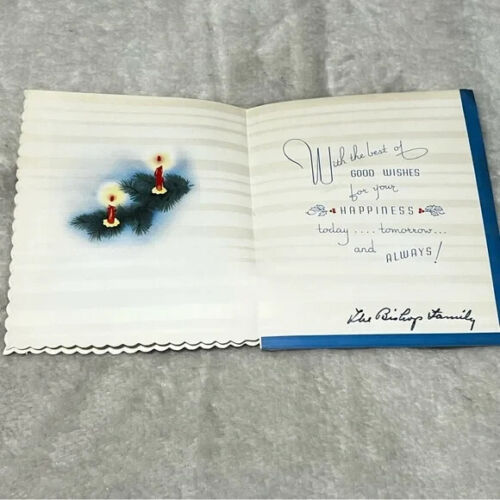 With the best of
GOOD WISHES
for your
HAPPINESS
today .... tomorrow...
and ALWAYS!
The Bishop Family